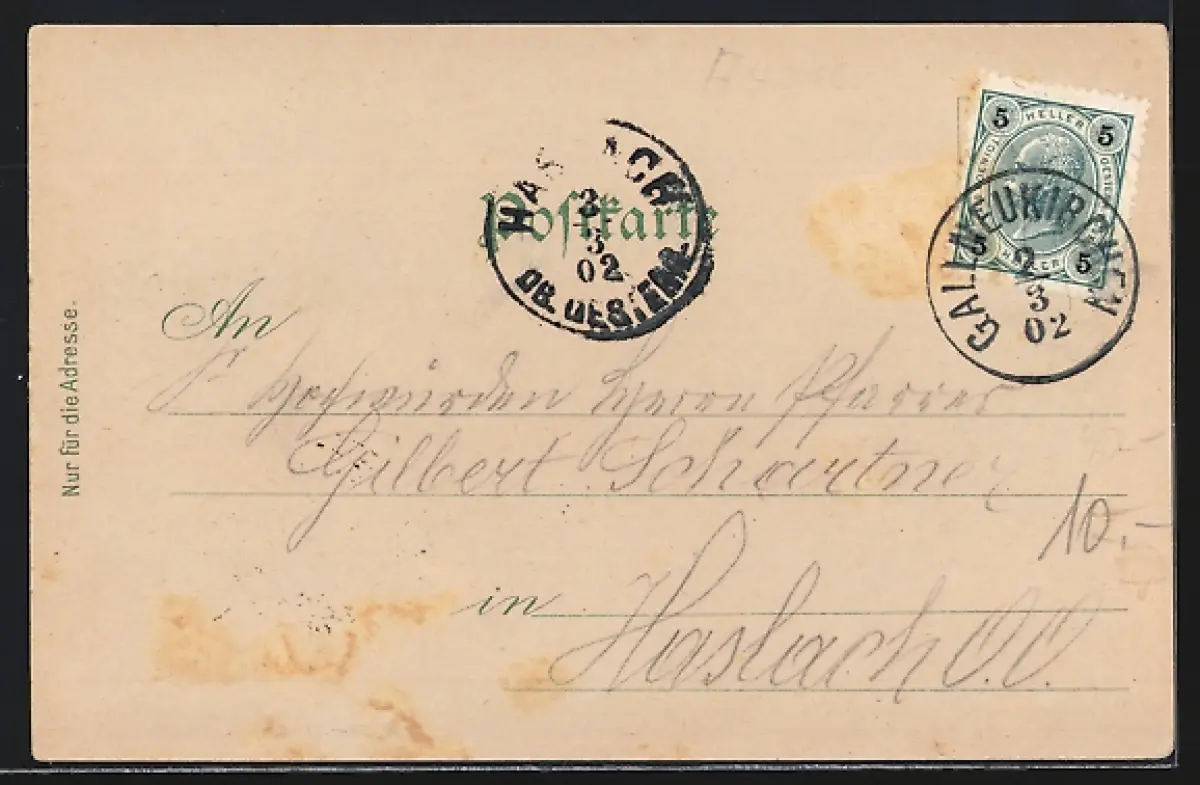 5 HELLER 5
5 HELLER 5
GALLNEUKIRCHEN
2
3
02
HASLACH
3
3
02
OB. OESTERR.
Postkarte
Nur für die Adresse.
An
Sr Hochwürden Herrn Pfarrer
Gilbert Schartner
10.-
in
Haslach O.Ö.